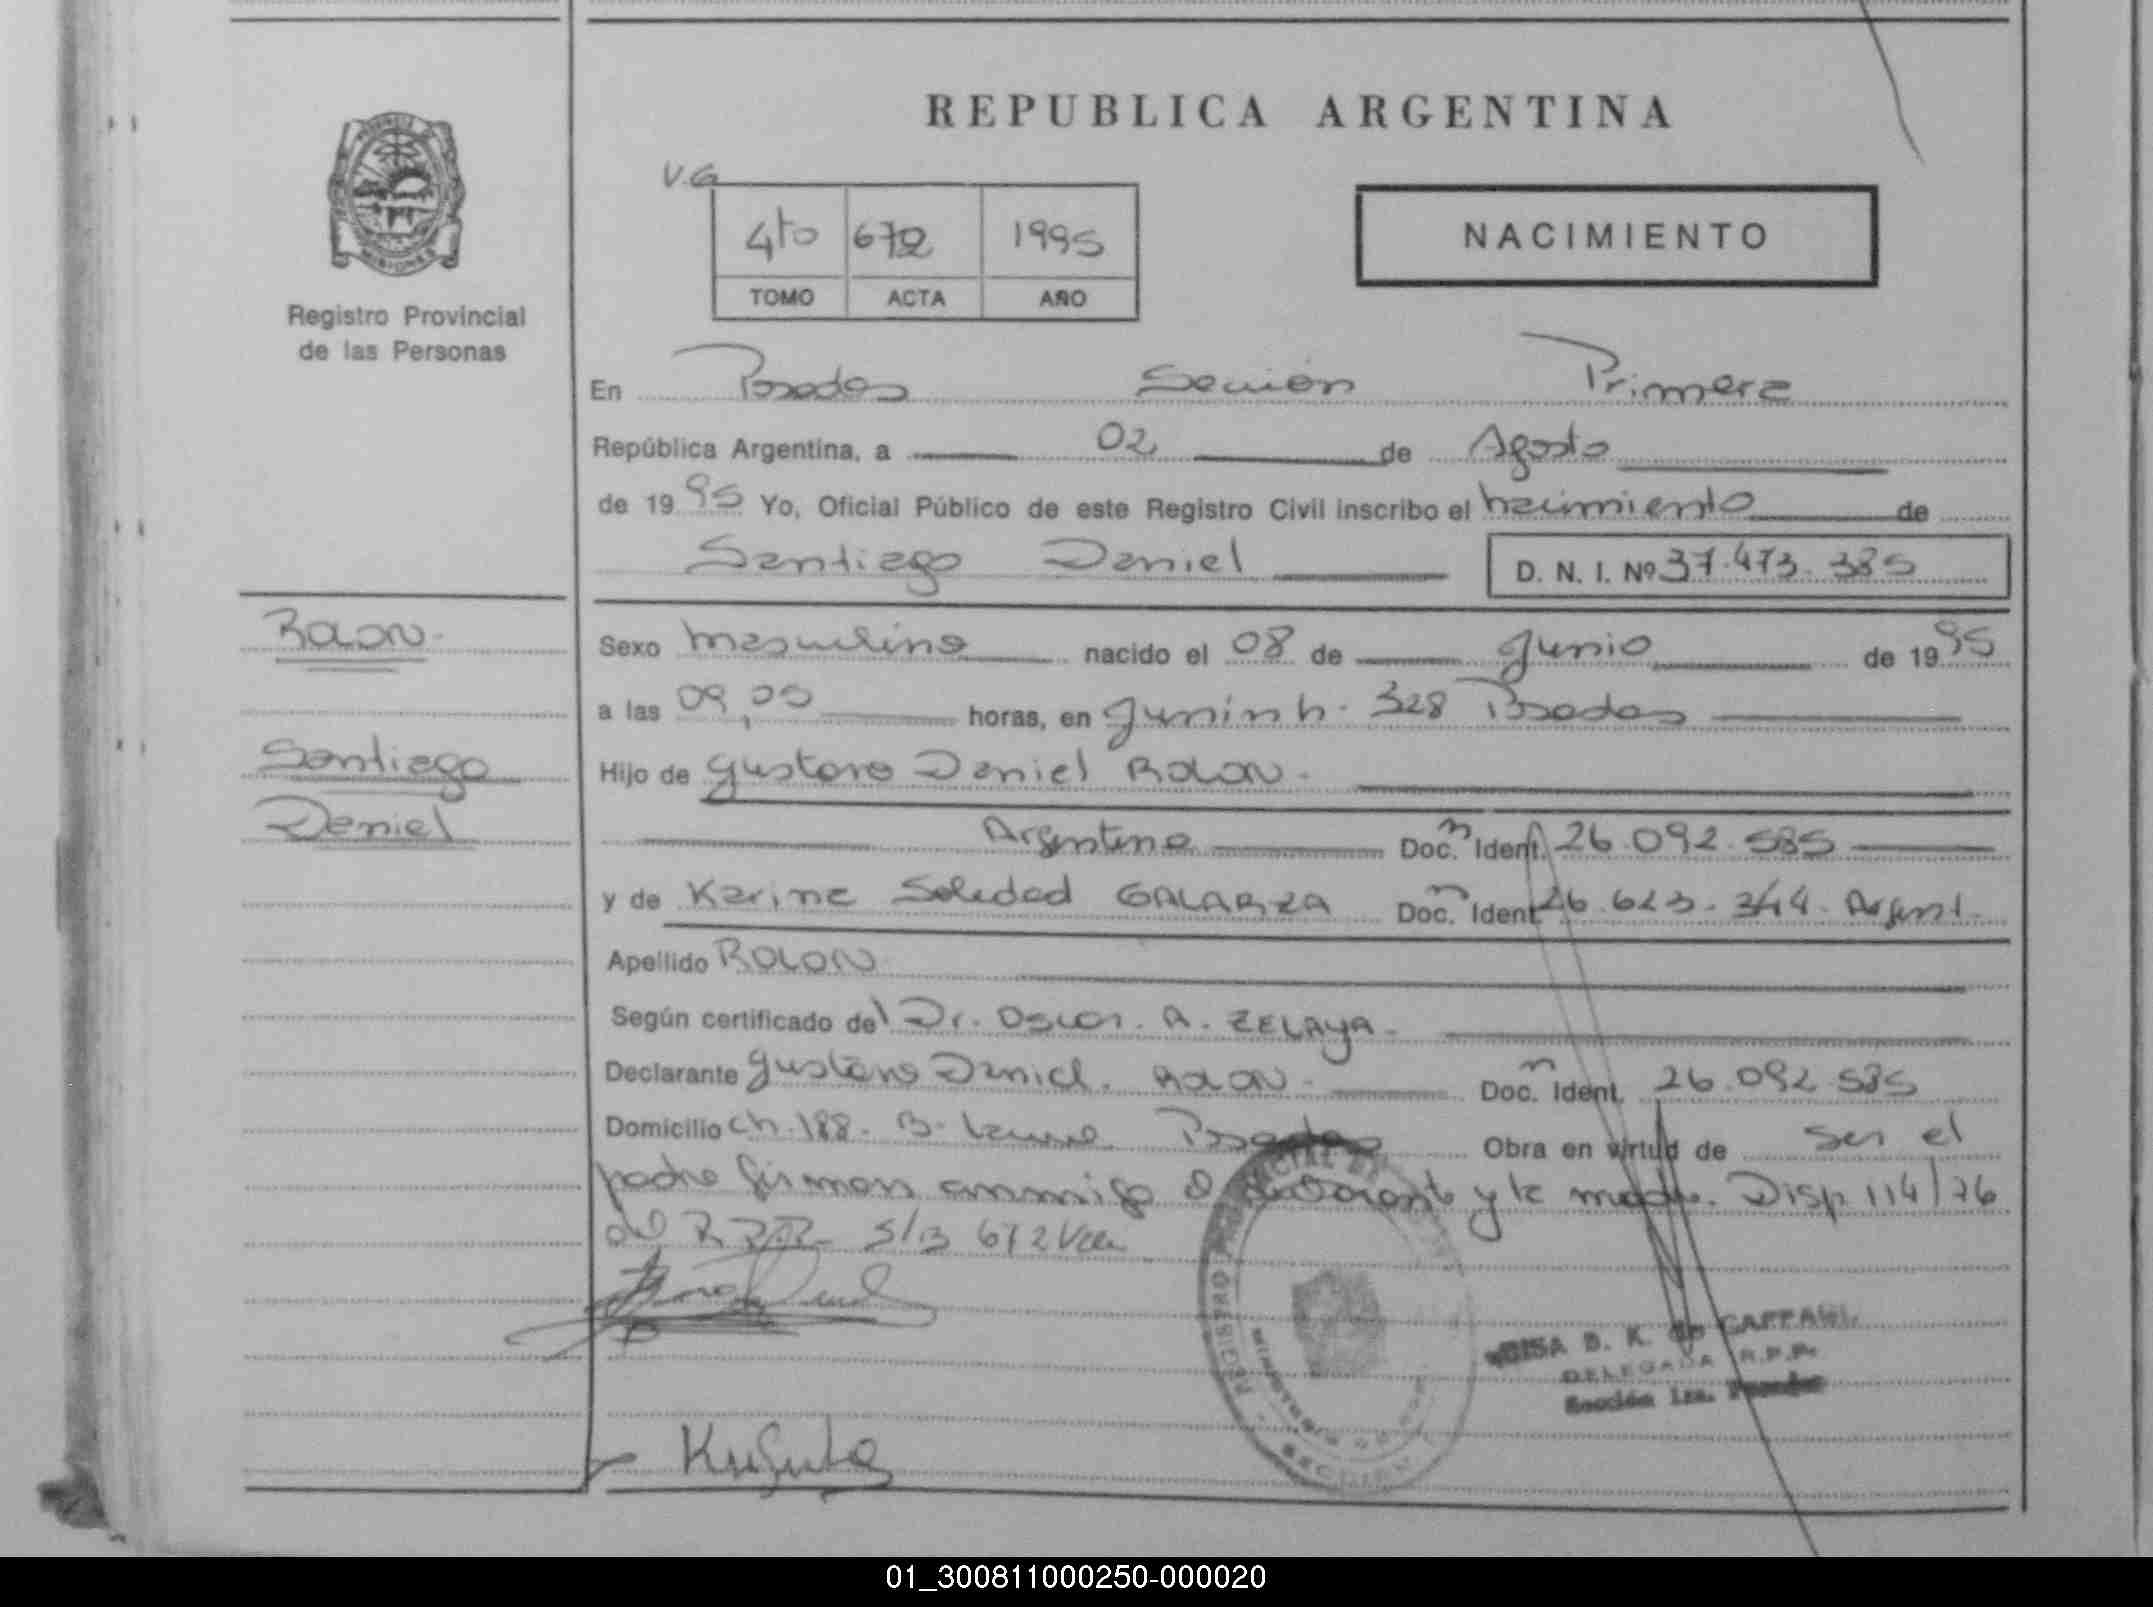 REPUBLICA ARGENTINA
V.G
4to 672 1995
TOMO ACTA AÑO
NACIMIENTO
PROVINCIA DE
MISIONES
Registro Provincial
de las Personas
En Posadas Sección Primera
República Argentina, a 02 de Agosto
de 1995 Yo, Oficial Público de este Registro Civil inscribo el nacimiento de
Santiago Daniel D. N. I. Nº 37.473.385
ROLON.
Santiago
Daniel
Sexo masculino nacido el 08 de Junio de 1995
a las 09,05 horas, en Junin n. 328 Posadas
Hijo de Gustavo Daniel ROLON.
Argentino Doc. Ident. 26.092.585
y de Karina Soledad GALARZA Doc. Ident 26.623.344. Argent.
Apellido ROLON
Según certificado del Dr. Oscar. A. ZELAYA.
Declarante Gustavo Daniel. ROLON. Doc. Ident. 26.092.585
Domicilio ch. 188. B. Posadas Obra en virtud de ser el
padre firman conmigo el declarante y la madre. Disp. 114/76
del R.P.P. S/B 672 Vale
REGISTRO PROVINCIAL DE
MINISTERIO DE GOB
SECCION
B. K. de CAFFARO
DELEGADA R.P.P.
Sección 1ra. Posadas
01_300811000250-000020